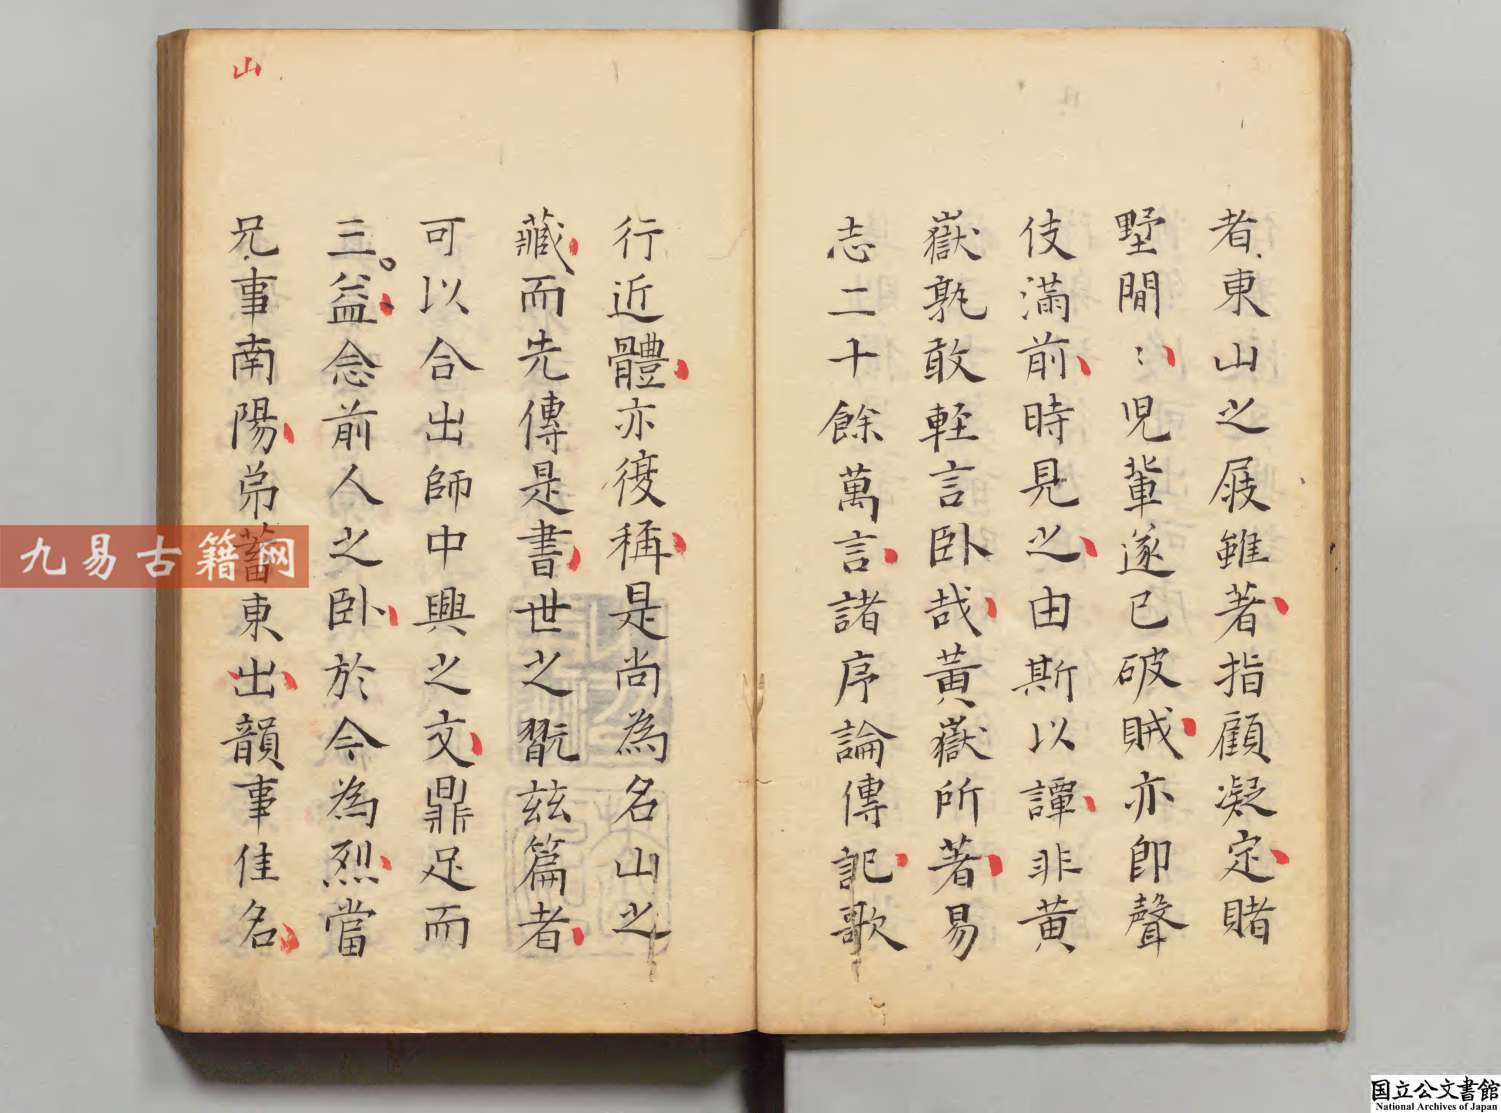 者東山之屐雖著指顧凝定賭
墅間〻児輩遂已破賊亦即聲
伎滿前時見之由斯以譚非黃
嶽孰敢輕言卧哉黃嶽所著易
志二十餘萬言諸序論傳記歌
行近體亦復稱是尚為名山之
藏而先傳是書世之翫茲篇者
可以合出師中興之文鼎足而
三益念前人之卧於今為烈當
兄事南陽弟蓄東出韻事佳名
山
九易古籍网
国立公文書館
National Archives of Japan